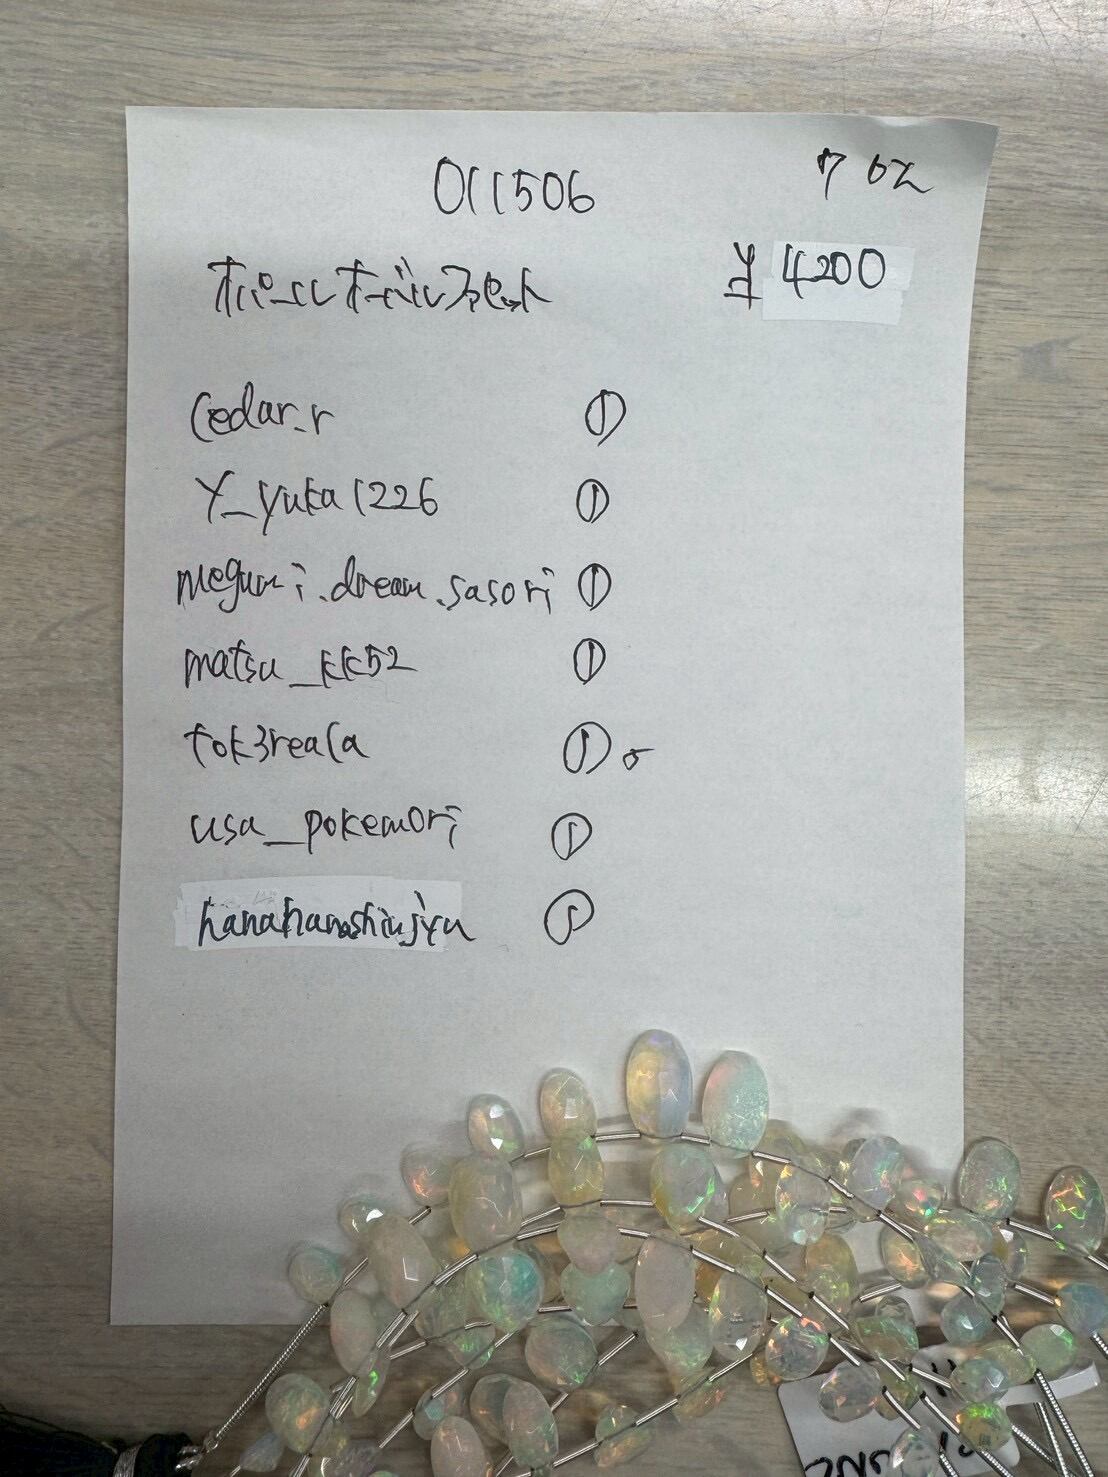 011506
オパールオーバルファセット
¥4200
cedar_r ①
Y_yuka1226 ①
megumi.dream.sasori ①
matsu_kk52 ①
tok3reala ①
usa_pokemori ①
hanahanashinjyu ①